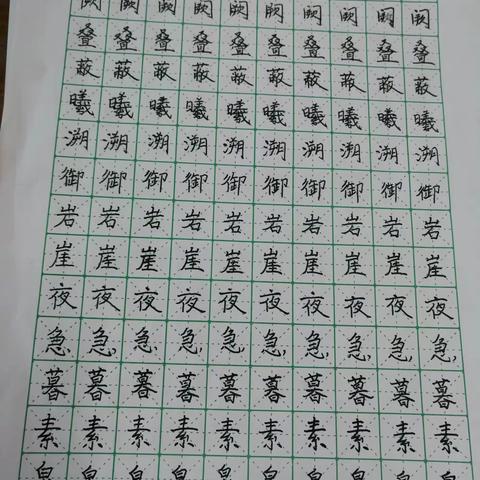 阙阙阙阙阙阙阙阙阙阙
叠叠叠叠叠叠叠叠叠叠
蔽蔽蔽蔽蔽蔽蔽蔽蔽蔽
曦曦曦曦曦曦曦曦曦曦
溯溯溯溯溯溯溯溯溯溯
御御御御御御御御御御
岩岩岩岩岩岩岩岩岩岩
崖崖崖崖崖崖崖崖崖崖
夜夜夜夜夜夜夜夜夜夜
急急急急急急急急急急
暮暮暮暮暮暮暮暮暮暮
素素素素素素素素素素